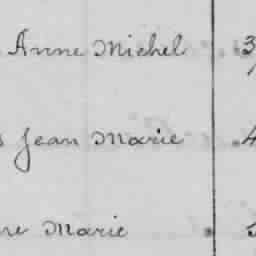 Anne Michel 3
Jean Marie 4
Marie